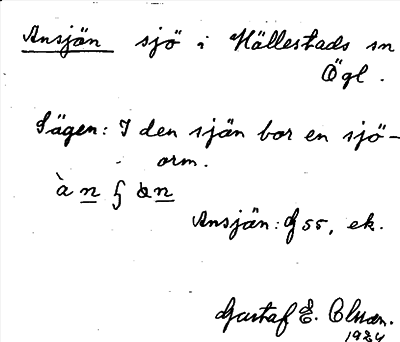 Ansjön sjö i Hällestads sn
Ögl.
Sägen: I den sjön bor en sjö-
orm.
Ansjön: G 55, ek.
Gustaf E. Olsson.
1934